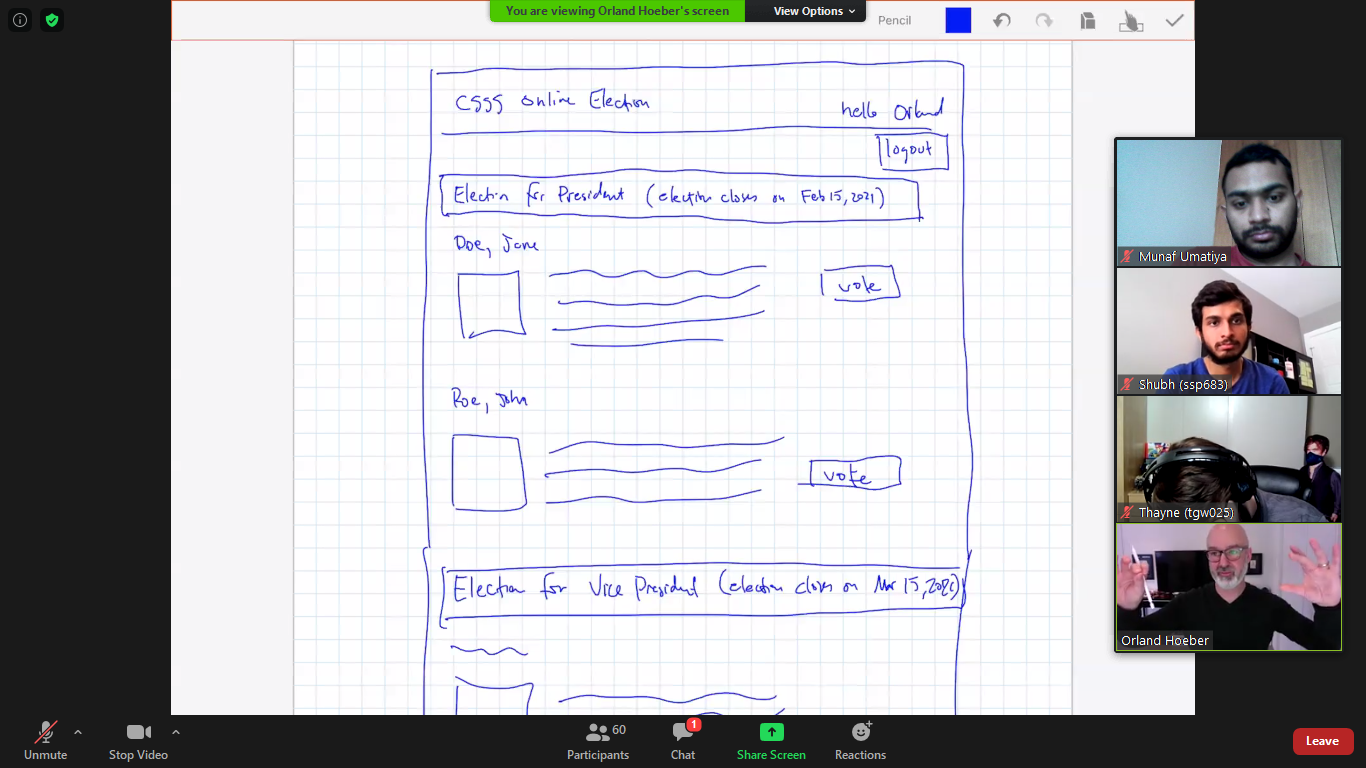 You are viewing Orland Hoeber's screen
View Options
Pencil
CSSS Online Election
hello Orland
logout
Election for President (election closes on Feb 15, 2021)
Doe, Jane
vote
Roe, John
vote
Election for Vice President (election closes on Mar 15, 2021)
Munaf Umatiya
Shubh (ssp683)
Thayne (tgw025)
Orland Hoeber
Unmute
Stop Video
Participants
60
Chat
1
Share Screen
Reactions
Leave